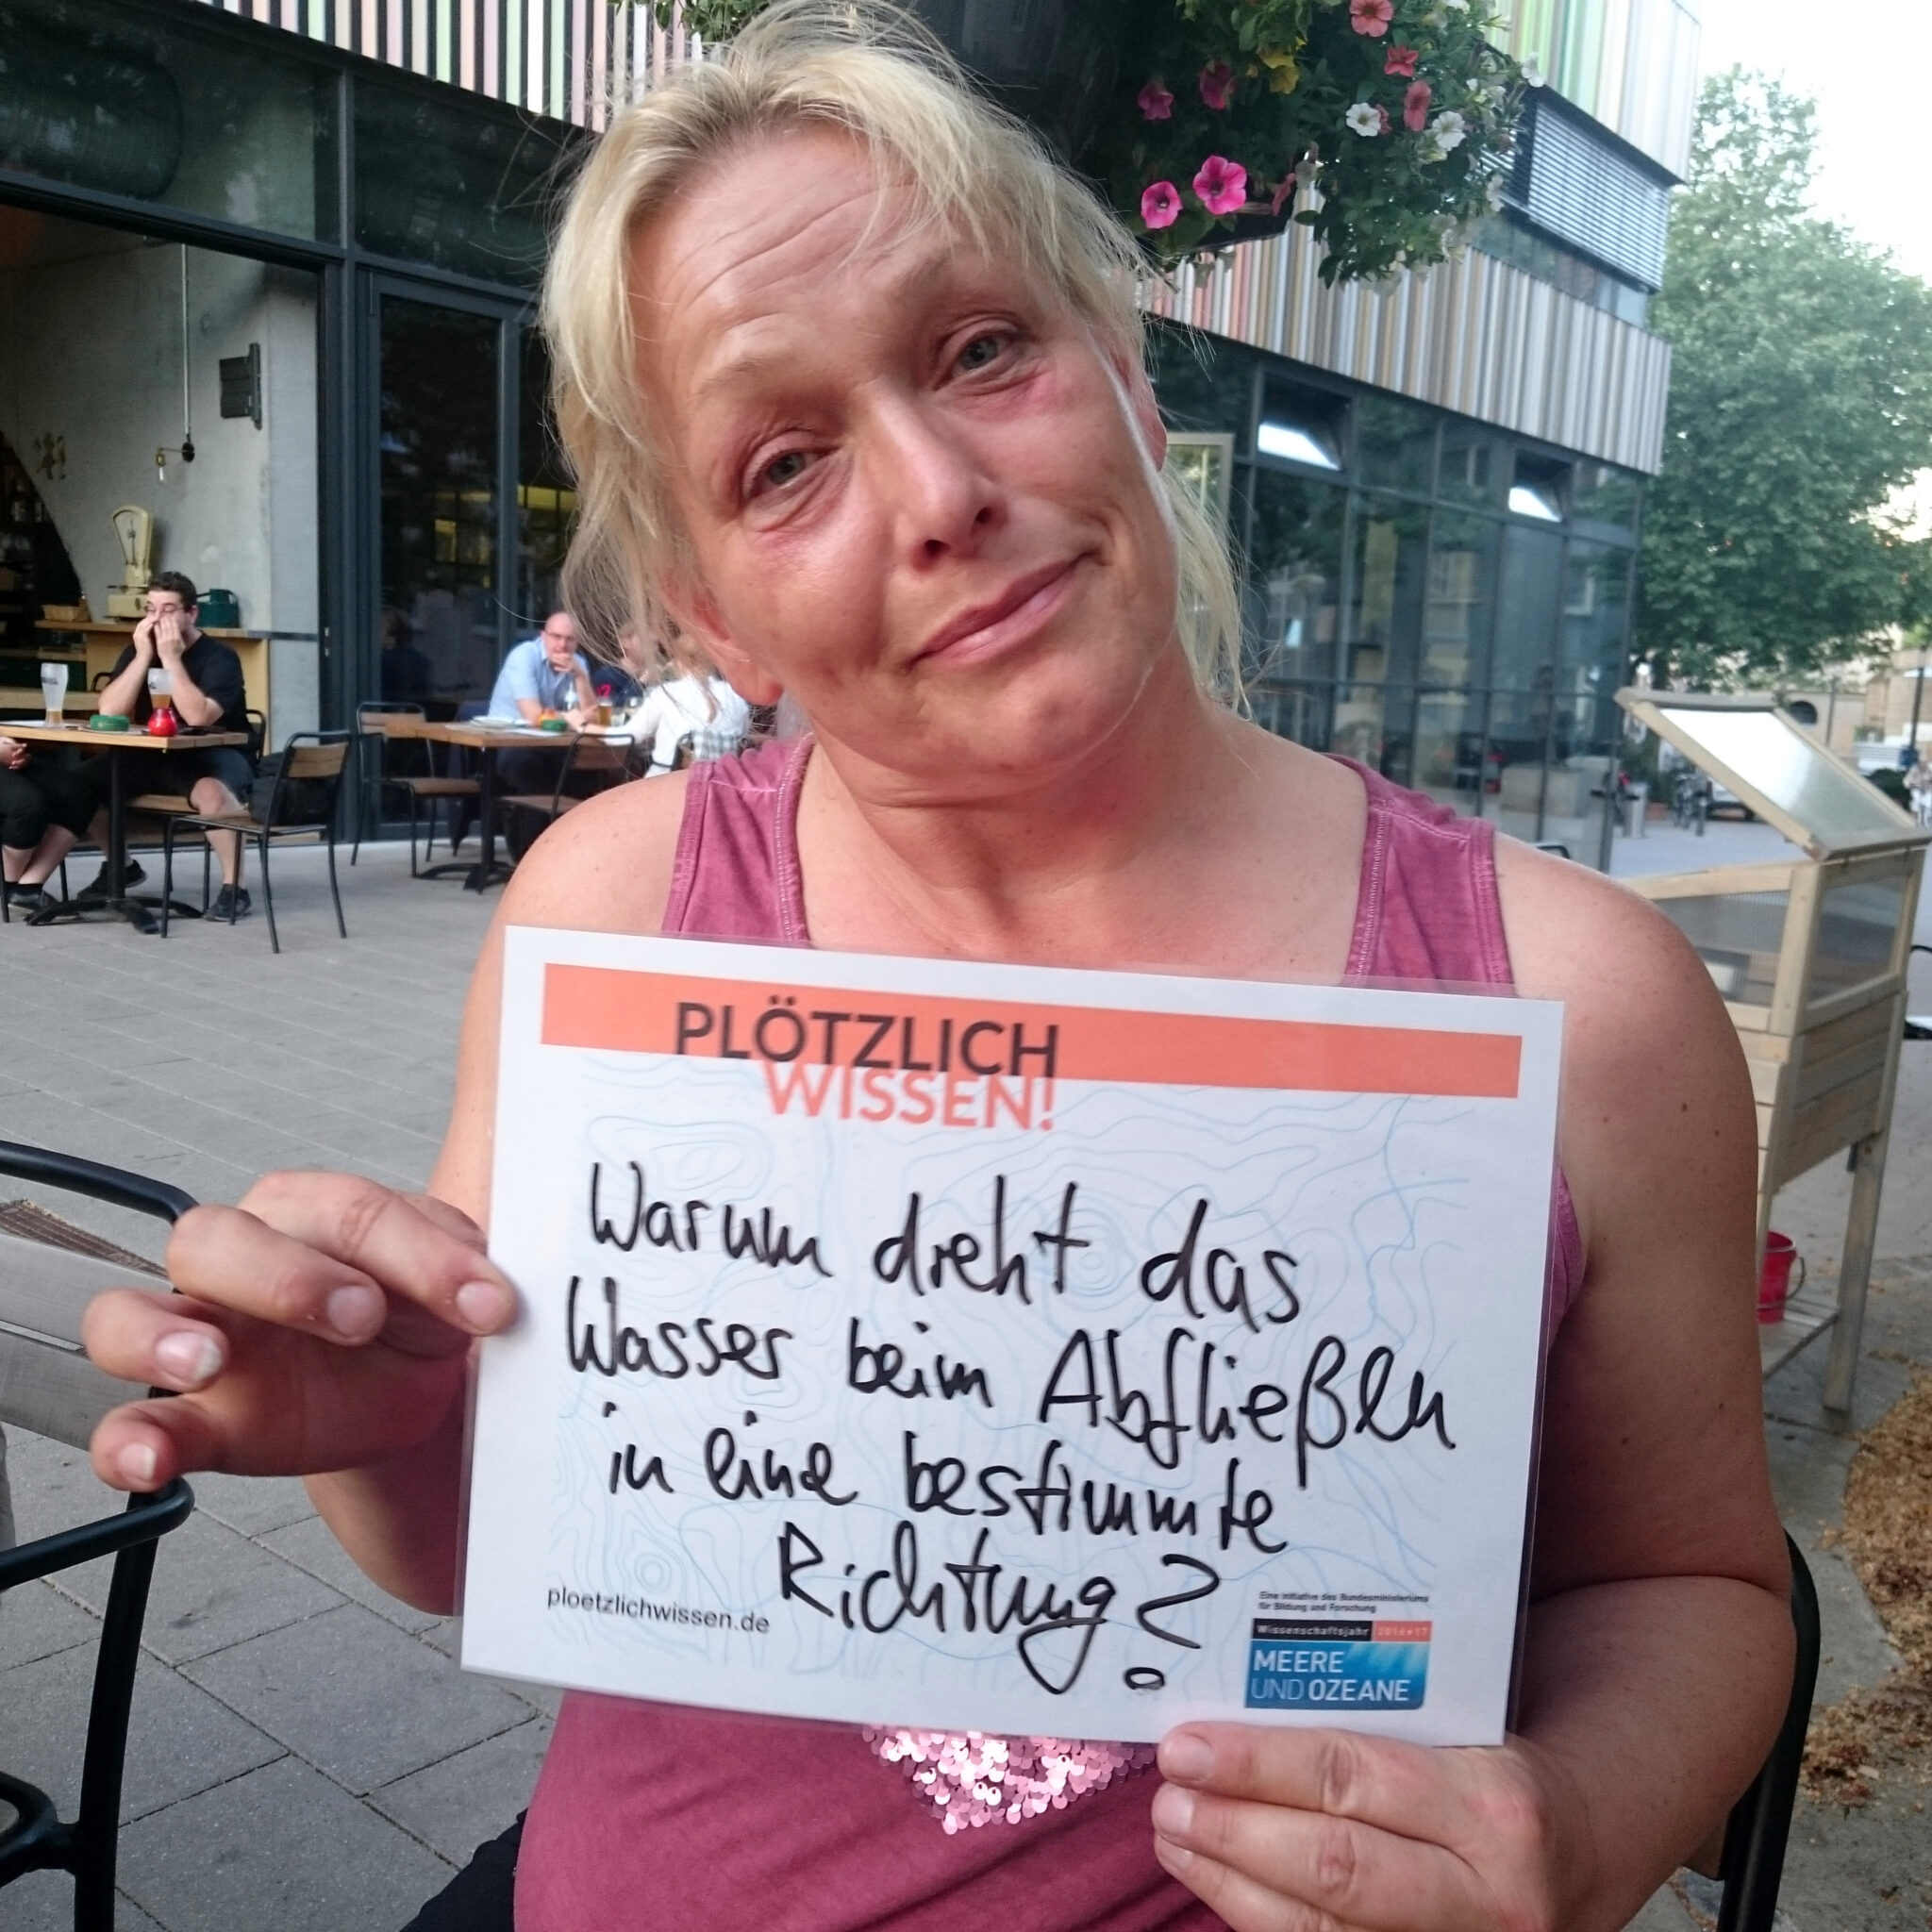 PLÖTZLICH
WISSEN!
Warum dreht das
Wasser beim Abfließen
in eine bestimmte
Richtung?
ploetzlichwissen.de
Eine Initiative des Bundesministeriums
für Bildung und Forschung
Wissenschaftsjahr 2016*17
MEERE
UND OZEANE